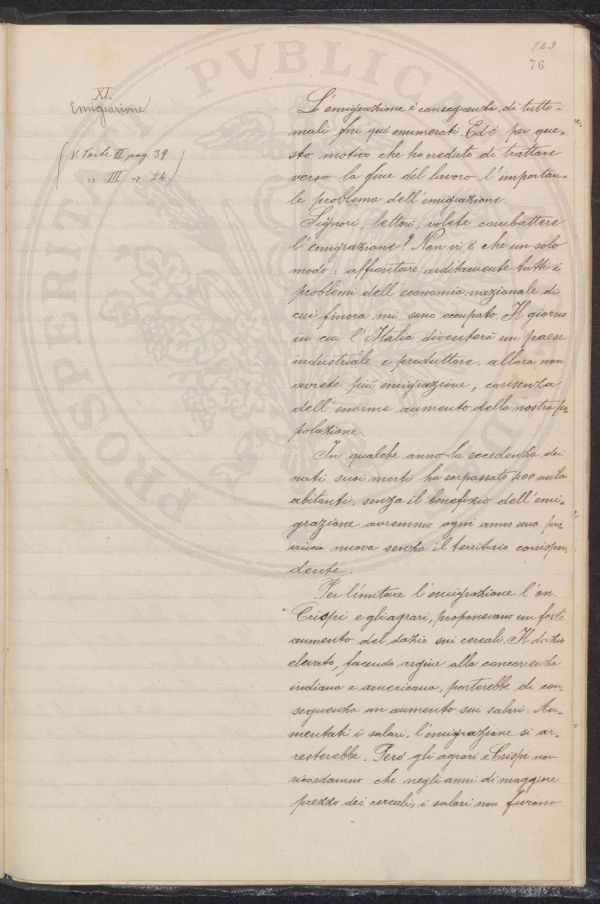 149
76
XI.
Emigrazione
V. Parte II pag. 39
" III " 24
L'emigrazione è conseguenza di tutti i
mali fin qui enumerati. Ed è per que-
sto motivo che ho creduto di trattare
verso la fine del lavoro l'importan-
te problema dell'emigrazione.
Signori, lettori, volete combattere
l'emigrazione? Non vi è che un solo
modo: affrontare arditamente tutti i
problemi dell'economia nazionale di
cui finora mi sono occupato. Il giorno
in cui l'Italia diventerà un paese
industriale e produttore, allora non
avrete più emigrazione, conseguenza
dell'enorme aumento della nostra po
polazione.
In qualche anno la eccedenza dei
nati sui morti ha sorpassato 400 mila
abitanti, senza il benefizio dell'emi-
grazione avremmo ogni anno una pro
vincia nuova senza il territorio corrispon
dente.
Per limitare l'emigrazione l'on.
Crispi e gli agrari, proponevano un forte
aumento del dazio sui cereali. Il dazio
elevato, facendo argine alla concorrenza
indiana e americana, porterebbe di con-
seguenza un aumento sui salari. Au-
mentati i salari, l'emigrazione si ar-
resterebbe. Però gli agrari e Crispi non
ricordavano che negli anni di maggiore
prezzo dei cereali, i salari non furono
PROSPERITATI PVBLICAE